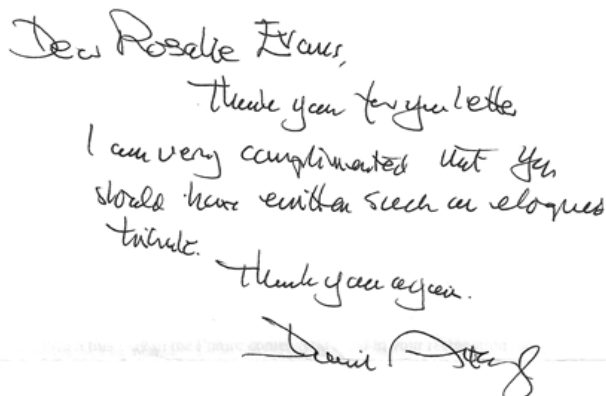 Dear Rosalie Evans,
Thank you for your letter
I am very complimented that you
should have written such an eloquent
tribute.
Thank you again.